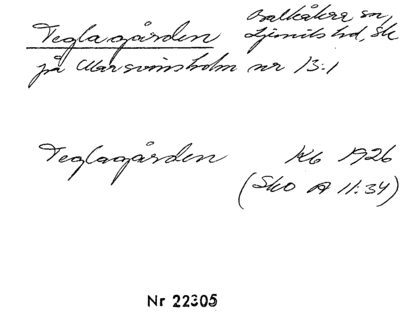 Teglagården Balkåkra sn,
Ljunits hd, Sk
på Marsvinsholm nr 13:1
Teglagården Kb 1926
(Sko A 11:34)
Nr 22305